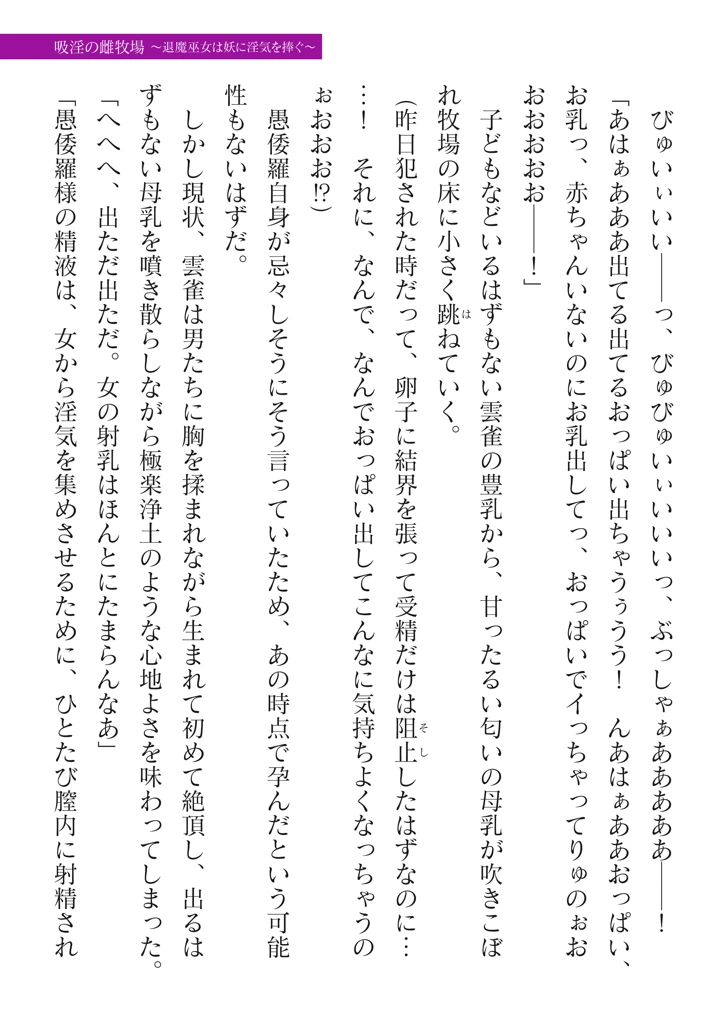 吸淫の雌牧場 ～退魔巫女は妖に淫気を捧ぐ～
びゅいぃいい――っ、びゅびゅいぃいいいっ、ぶっしゃぁああああぁ――！
「あはぁあああ出てる出てるおっぱい出ちゃうぅうう！　んあはぁああおっぱい、
お乳っ、赤ちゃんいないのにお乳出してっ、おっぱいでイっちゃってりゅのぉお
おおおおお――！」
子どもなどいるはずもない雲雀の豊乳から、甘ったるい匂いの母乳が吹きこぼ
は
れ牧場の床に小さく跳ねていく。
そし
（昨日犯された時だって、卵子に結界を張って受精だけは阻止したはずなのに…
…！　それに、なんで、なんでおっぱい出してこんなに気持ちよくなっちゃうの
ぉおおお!?）
愚倭羅自身が忌々しそうにそう言っていたため、あの時点で孕んだという可能
性もないはずだ。
しかし現状、雲雀は男たちに胸を揉まれながら生まれて初めて絶頂し、出るは
ずもない母乳を噴き散らしながら極楽浄土のような心地よさを味わってしまった。
「へへへ、出ただ出ただ。女の射乳はほんとにたまらんなあ」
「愚倭羅様の精液は、女から淫気を集めさせるために、ひとたび膣内に射精され